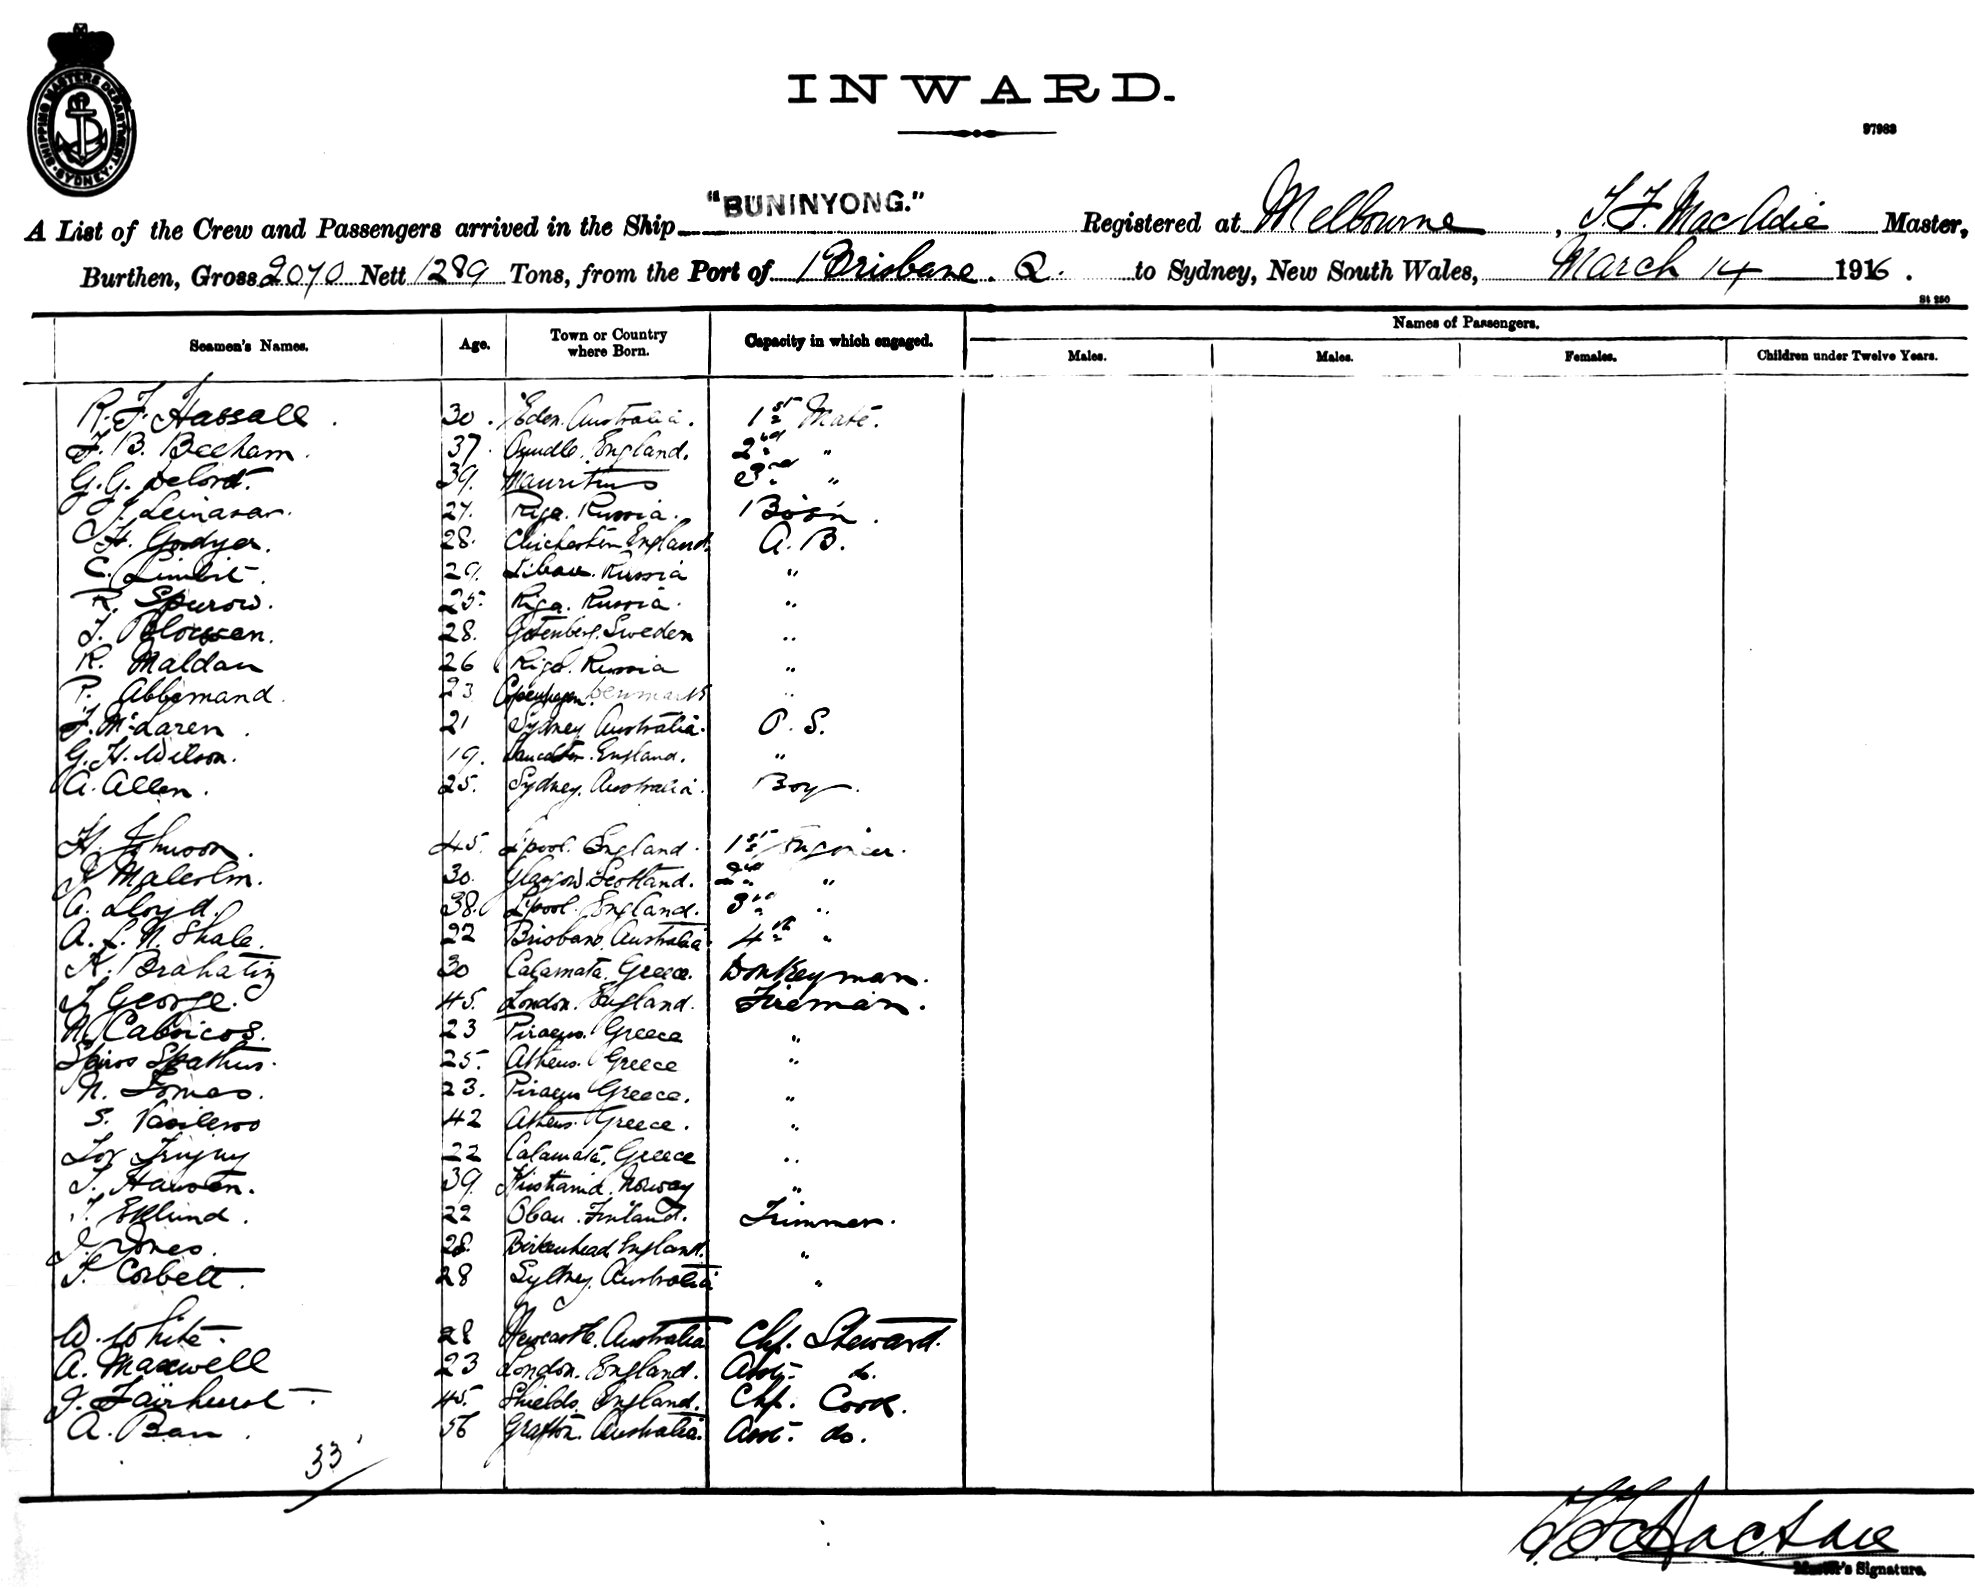 SHIPPING MASTERS DEPARTMENT
SYDNEY
INWARD.
97983
A List of the Crew and Passengers arrived in the Ship "BUNINYONG." Registered at Melbourne, T. F. MacAdie Master,
Burthen, Gross 2070 Nett 1289 Tons, from the Port of Brisbane. Q. to Sydney, New South Wales, March 14 1916.
St 250
Seamen's Names. Age. Town or Country where Born. Capacity in which engaged. Names of Passengers.
Males. Males. Females. Children under Twelve Years.
R. F. Hassall. 30. Eden. Australia. 1st Mate.
F. B. Beeham. 37. Oundle. England. 2nd "
G. G. Delort. 39. Mauritius 3rd "
J. Leinasar. 27. Riga. Russia. Bos'n.
H. Goodyer. 28. Chichester England. A. B.
C. Limbit. 29. Libau. Russia "
R. Spurow. 25. Riga. Russia. "
J. 28. Gotenberg. Sweden "
R. Maldau 26 Riga. Russia "
P. Abbemand. 23 Copenhagen. Denmark "
J. McLaren. 21 Sydney Australia. O. S.
G. H. Wilson. 19. England. "
A. Allen. 25. Sydney. Australia. Boy.
H. Johnson. 45. L'pool. England. 1st Engineer.
Malcolm. 30. Glasgow. Scotland. 2nd "
A. Lloyd. 38. L'pool. England. 3rd "
A. L. N. Shale. 22 Brisbane. Australia 4th "
K. Brahatis 30 Calamata. Greece. Donkeyman.
J. George. 45. London. England. Fireman.
N. Cabricos. 23 Piraeus. Greece "
Spiros Spathis. 25. Athens. Greece "
N. Tomas. 23. Piraeus Greece. "
S. Vasileso 42 Athens. Greece. "
22 Calamata. Greece "
39. Kristiania. Norway "
J. Eklund. 22 Obau. Finland. Trimmer.
J. Jones. 28. Birkenhead. England. "
Corbett. 28 Sydney. Australia "
W. White. 28 Newcastle. Australia Chf. Steward.
A. Maxwell 23 London. England. Asst. do.
J. Fairhurst. 45. Shields. England. Chf. Cook.
A. Bau. 56 Grafton. Australia. Asst. do.
33
T. F. MacAdie
Master's Signature.